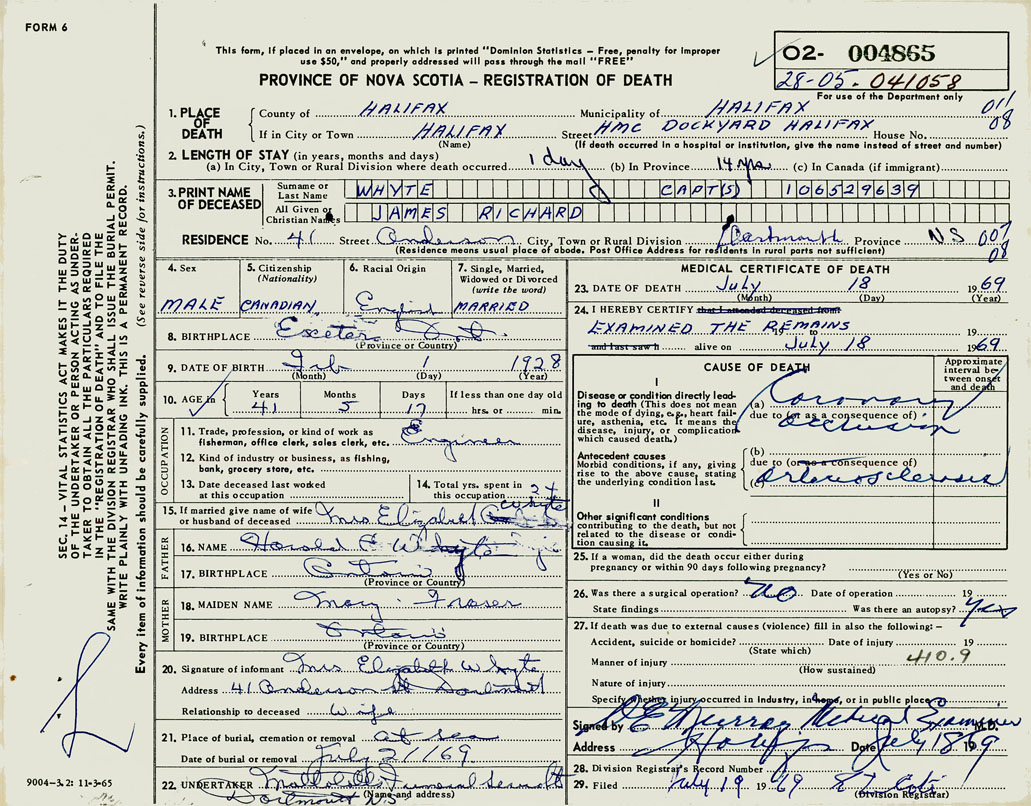 FORM 6
This form, if placed in an envelope, on which is printed "Dominion Statistics – Free, penalty for improper
use $50," and properly addressed will pass through the mail "FREE"
PROVINCE OF NOVA SCOTIA – REGISTRATION OF DEATH
02- 004865
28-05. 041058
For use of the Department only
1. PLACE OF DEATH
County of HALIFAX Municipality of HALIFAX 011
If in City or Town HALIFAX Street HMC DOCKYARD HALIFAX House No. 08
(Name) (If death occurred in a hospital or institution, give the name instead of street and number)
2. LENGTH OF STAY (in years, months and days)
(a) In City, Town or Rural Division where death occurred 1 day (b) In Province 14 yrs (c) In Canada (if immigrant)
3. PRINT NAME OF DECEASED
Surname or Last Name WHYTE CAPT(S) 106529639
All Given or Christian Names JAMES RICHARD
RESIDENCE No. 41 Street Anderson City, Town or Rural Division Dartmouth Province NS 007
(Residence means usual place of abode. Post Office Address for residents in rural parts not sufficient) 08
4. Sex MALE
5. Citizenship (Nationality) CANADIAN
6. Racial Origin England
7. Single, Married, Widowed or Divorced (write the word) MARRIED
8. BIRTHPLACE Exeter Ont.
(Province or Country)
9. DATE OF BIRTH Feb 1 1928
(Month) (Day) (Year)
10. AGE in Years 41 Months 5 Days 17 If less than one day old hrs. or min.
OCCUPATION
11. Trade, profession, or kind of work as fisherman, office clerk, sales clerk, etc. Engineer
12. Kind of industry or business, as fishing, bank, grocery store, etc.
13. Date deceased last worked at this occupation
14. Total yrs. spent in this occupation 24
15. If married give name of wife or husband of deceased Mrs Elizabeth Whyte
FATHER
16. NAME Harold F. Whyte
17. BIRTHPLACE Ontario
(Province or Country)
MOTHER
18. MAIDEN NAME Mary Fraser
19. BIRTHPLACE Ontario
(Province or Country)
20. Signature of informant Mrs Elizabeth Whyte
Address 41 Anderson St Dartmouth
Relationship to deceased Wife
21. Place of burial, cremation or removal at sea
Date of burial or removal July 21/69
22. UNDERTAKER Funeral
(Name and address)
Dartmouth NS
MEDICAL CERTIFICATE OF DEATH
23. DATE OF DEATH July 18 1969
(Month) (Day) (Year)
24. I HEREBY CERTIFY that I attended deceased from
EXAMINED THE REMAINS 19 to 19
and last saw h alive on July 18 1969
CAUSE OF DEATH
Approximate interval between onset and death
I
Disease or condition directly leading to death (This does not mean the mode of dying, e.g., heart failure, asthenia, etc. It means the disease, injury, or complication which caused death.)
(a) Coronary
due to (or as a consequence of)
occlusion
Antecedent causes
Morbid conditions, if any, giving rise to the above cause, stating the underlying condition last.
(b)
due to (or as a consequence of)
(c) arteriosclerosis
II
Other significant conditions contributing to the death, but not related to the disease or condition causing it.
25. If a woman, did the death occur either during pregnancy or within 90 days following pregnancy?
(Yes or No)
26. Was there a surgical operation? No Date of operation 19
State findings Was there an autopsy? Yes
27. If death was due to external causes (violence) fill in also the following: –
Accident, suicide or homicide? Date of injury 19
(State which)
Manner of injury 410.9
(How sustained)
Nature of injury
Specify whether injury occurred in Industry, in home, or in public place
Signed by D E Murray Medical Examiner M.D.
Address Halifax Date July 18 1969
28. Division Registrar's Record Number
29. Filed July 19 1969
(Division Registrar)
SEC. 14 – VITAL STATISTICS ACT MAKES IT THE DUTY
OF THE UNDERTAKER OR PERSON ACTING AS UNDER-
TAKER TO OBTAIN ALL THE PARTICULARS REQUIRED
IN THE "REGISTRATION OF DEATH" AND TO FILE THE
SAME WITH THE DIVISION REGISTRAR WHO SHALL ISSUE THE BURIAL PERMIT.
WRITE PLAINLY WITH UNFADING INK. THIS IS A PERMANENT RECORD.
Every item of information should be carefully supplied. (See reverse side for instructions.)
9004-3.2: 11-3-65